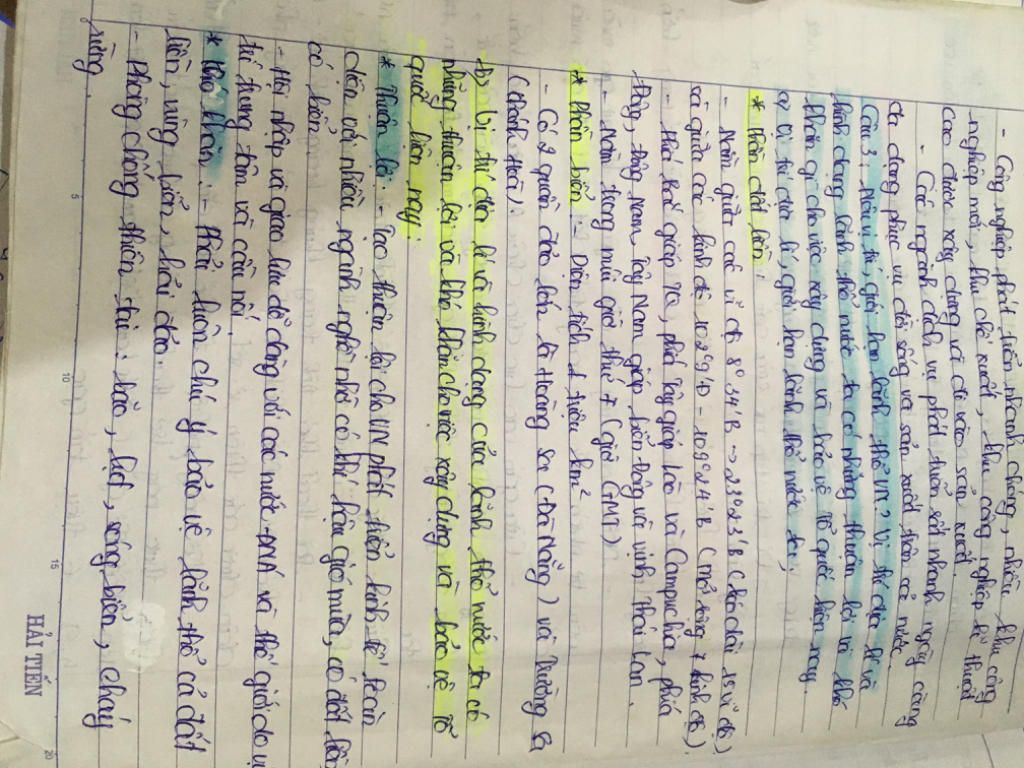 - Công nghiệp phát triển nhanh chóng, nhiều khu công
nghiệp mới, khu chế xuất, khu công nghiệp kĩ thuật
cao được xây dựng và đi vào sản xuất.
- Các ngành dịch vụ phát triển rất nhanh ngày càng
đa dạng phục vụ đời sống và sản xuất trên cả nước.
Câu 3: Nêu vị trí, giới hạn lãnh thổ VN? Vị trí địa lí và
hình dạng lãnh thổ nước ta có những thuận lợi và khó
khăn gì cho việc xây dựng và bảo vệ tổ quốc hiện nay.
a) Vị trí địa lí, giới hạn lãnh thổ nước ta;
* Phần đất liền:
- Nằm giữa các vĩ độ 8°34'B → 23°23'B (kéo dài 15 vĩ độ)
và giữa các kinh độ 102°9'Đ - 109°24'B (mở rộng 7 kinh độ).
- Phía Bắc giáp TQ, phía Tây giáp Lào và Campuchia, phía
Đông, Đông Nam, Tây Nam giáp biển Đông và vịnh Thái Lan.
- Nằm trong múi giờ thứ 7 (giờ GMT)
* Phần biển: - Diện tích 1 triệu km²
- Có 2 quần đảo lớn là Hoàng Sa (Đà Nẵng) và Trường Sa
(Khánh Hòa).
b) Vị trí địa lí và hình dạng của lãnh thổ nước ta có
những thuận lợi và khó khăn cho việc xây dựng và bảo vệ tổ
quốc hiện nay:
* Thuận lợi: - Tạo thuận lợi cho VN phát triển kinh tế toàn
diện với nhiều ngành nghề nhờ có khí hậu gió mùa, có đất liền
có biển.
- Hội nhập và giao lưu dễ dàng với các nước ĐNÁ và thế giới do vị
trí trung tâm và cầu nối.
* Khó khăn: - Phải luôn chú ý bảo vệ lãnh thổ cả đất
liền, vùng biển, hải đảo.
- Phòng chống thiên tai: bão, lụt, sóng biển, cháy
rừng.
0 5 10 15 20
HẢI TIẾN